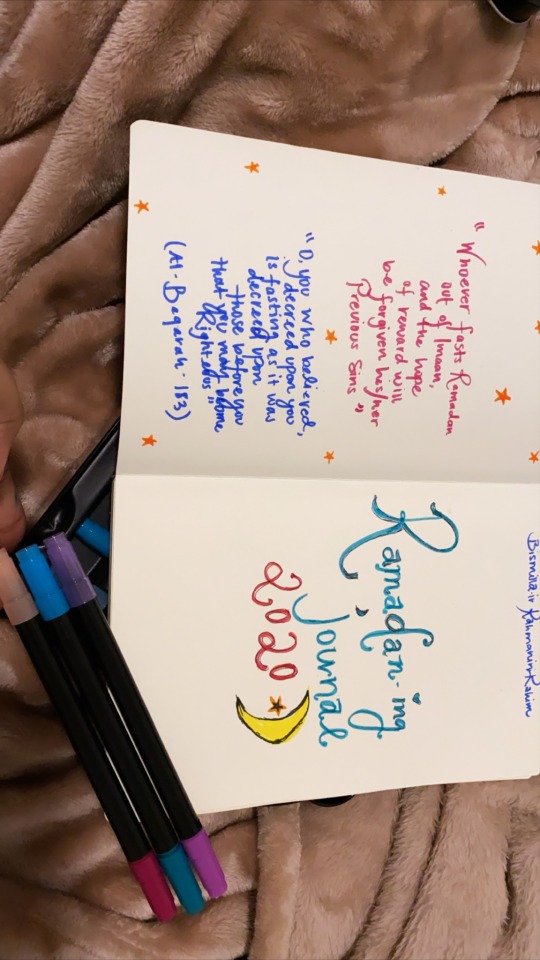 "Whoever fasts Ramadan
out of Imaan,
and the hope
of reward will
be forgiven his/her
Previous Sins"
"O, you who believed,
decreed upon you
is fasting as it was
decreed upon
those before you
that you may become
Righteous"
(Al-Baqarah-183)
Bismilla-ir Rahmanir-Rahim
Ramadan-ing
Journal
2020